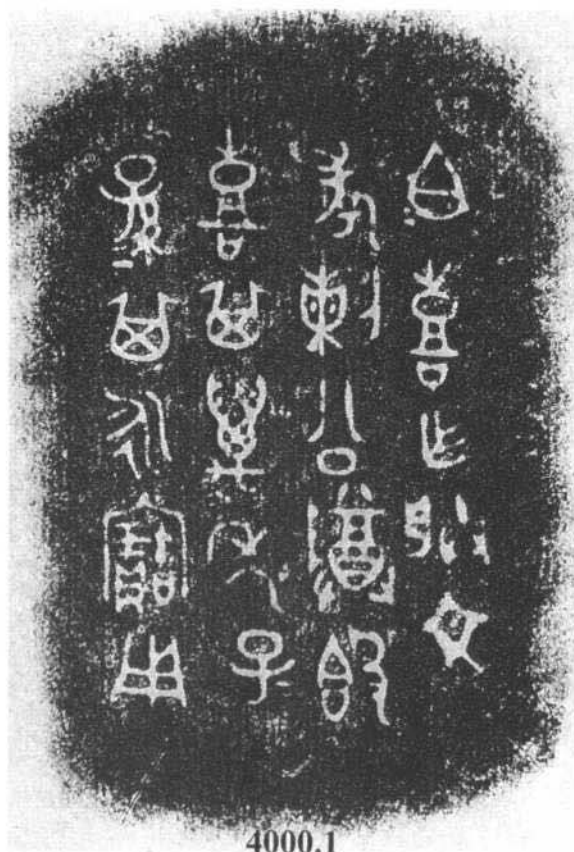 白喜乍朕文
考剌公𬯚𣪘
喜其萬年子=
孫=其永寶用
4000.1